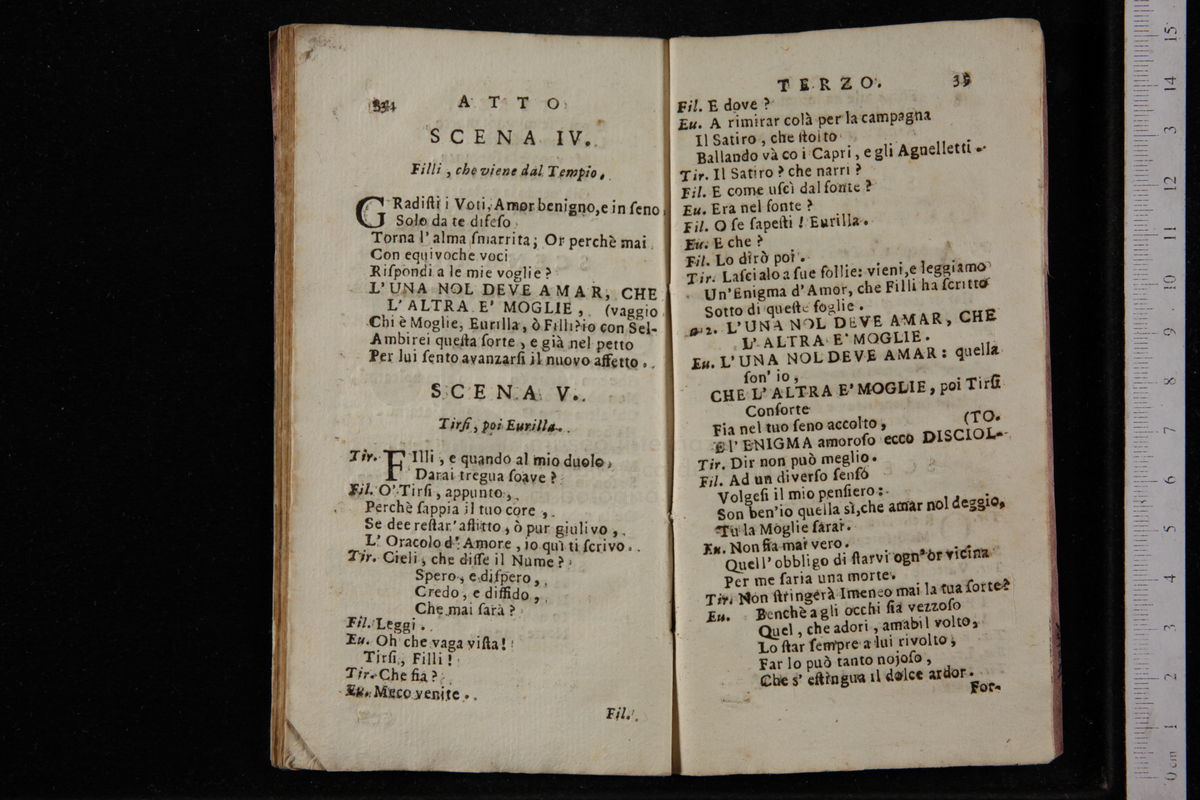 34 ATTO
SCENA IV.
Filli, che viene dal Tempio.
GRadiſti i Voti, Amor benigno, e in ſeno
Solo da te difeſo
Torna l'alma ſmarrita; Or perchè mai
Con equivoche voci
Riſpondi a le mie voglie?
L'UNA NOL DEVE AMAR, CHE
L'ALTRA E' MOGLIE, (vaggio
Chi è Moglie, Eurilla, ò Filli? io con Sel-
Ambirei queſta ſorte, e già nel petto
Per lui ſento avanzarſi il nuovo affetto.
SCENA V.
Tirſi, poi Eurilla.
Tir. FIlli, e quando al mio duolo,
Darai tregua ſoave?
Fil. O' Tirſi, appunto,
Perchè ſappia il tuo core,
Se dee reſtar' afflitto, ò pur giulivo,
L' Oracolo d' Amore, io quì ti ſcrivo.
Tir. Cieli, che diſſe il Nume?
Spero, e diſpero,
Credo, e diffido,
Che mai ſarà?
Fil. Leggi.
Eu. Oh che vaga viſta!
Tirſi, Filli!
Tir. Che fia?
Eu. Meco venite.
Fil.
TERZO. 35
Fil. E dove?
Eu. A rimirar colà per la campagna
Il Satiro, che ſtolto
Ballando và co i Capri, e gli Agnelletti.
Tir. Il Satiro? che narri?
Fil. E come uſcì dal fonte?
Eu. Era nel fonte?
Fil. O ſe ſapeſti! Eurilla.
Eu. E che?
Fil. Lo dirò poi.
Tir. Laſcialo a ſue follie: vieni, e leggiamo
Un'Enigma d'Amor, che Filli ha ſcritto
Sotto di queſte foglie.
a 2. L'UNA NOL DEVE AMAR, CHE
L'ALTRA E' MOGLIE.
Eu. L'UNA NOL DEVE AMAR: quella
ſon' io,
CHE L'ALTRA E' MOGLIE, poi Tirſi
Conſorte
Fia nel tuo ſeno accolto, (TO.
E l' ENIGMA amoroſo ecco DISCIOL-
Tir. Dir non può meglio.
Fil. Ad un diverſo ſenſo
Volgeſi il mio penſiero:
Son ben'io quella sì, che amar nol deggio,
Tu la Moglie ſarai.
Eu. Non ſia mai vero.
Quell' obbligo di ſtarvi ogn'or vicina
Per me ſaria una morte.
Tir. Non ſtringerà Imeneo mai la tua ſorte?
Eu. Benchè a gli occhi ſia vezzoſo
Quel, che adori, amabil volto,
Lo ſtar ſempre a lui rivolto,
Far lo può tanto nojoſo,
Che s' eſtingua il dolce ardor.
For-